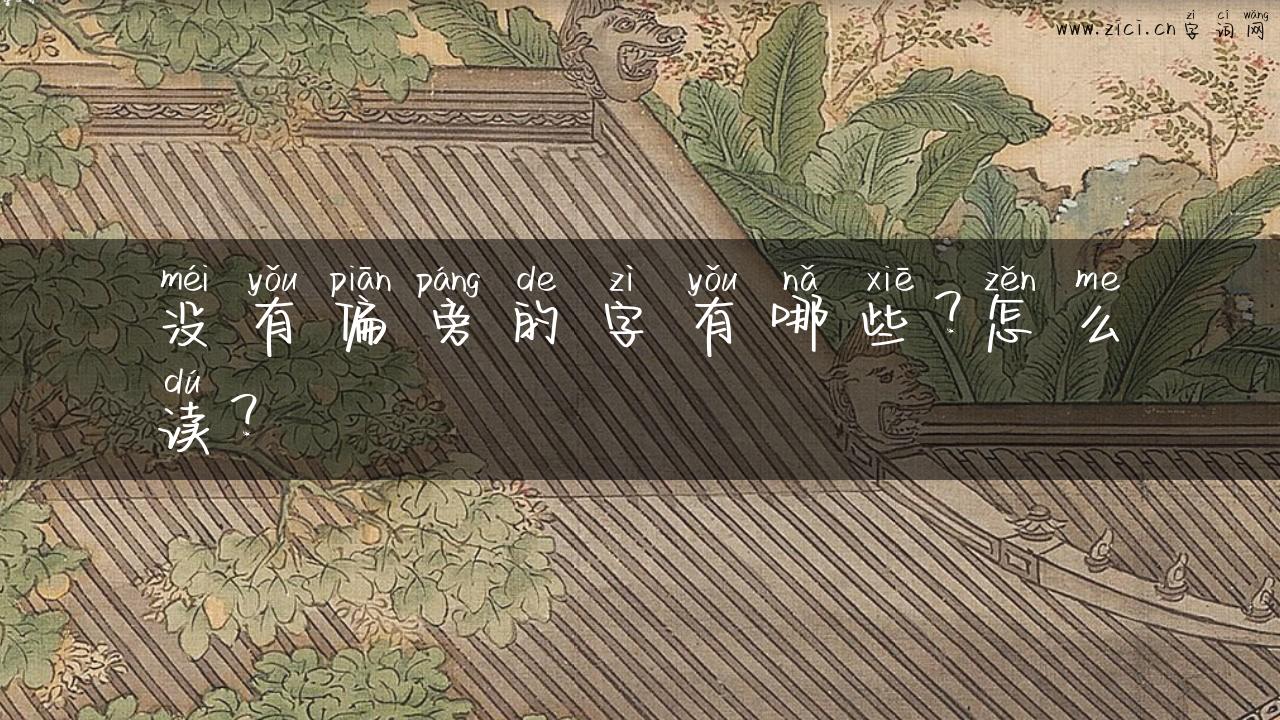 zì cí wǎng
www.zici.cn 字词网
méi yǒu piān páng de zì yǒu nǎ xiē zěn me
没有偏旁的字有哪些?怎么
dú
读?